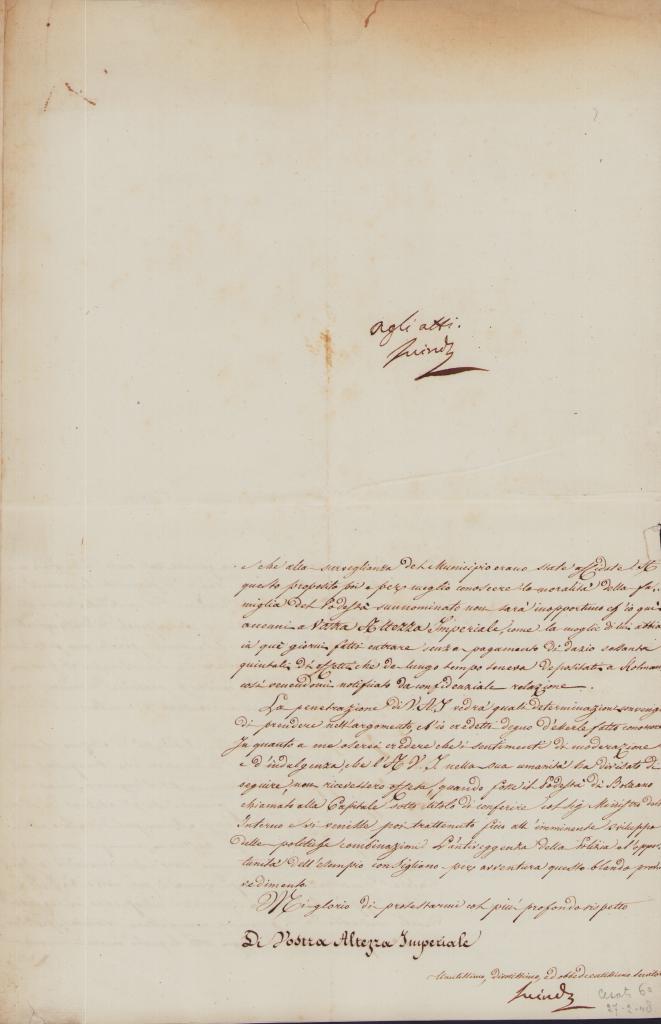 agli atti.
e che alla sorveglianza del Municipio erano state affidate. A
questo proposito poi e per meglio conoscere la moralità della fa-
miglia del Podestà sunnominato non sarà inopportuno ch'io qui
accenni a Vostra Altezza Imperiale, come la moglie di lui abbia
in que' giorni fatti entrare senza pagamento di dazio settanta
quintali di che da lungo tempo teneva depositati a
così venendomi notificato da confidenziale relazione.
La penetrazione di V. A. I. vedrà quali determinazioni convenga
di prendere nell'argomento, ch'io credetti degno d'esserle fatto conoscere
In quanto a me oserei credere che i sentimenti di moderazione
e d'indulgenza, che l'A. V. I. nella sua umanità ha divisato di
seguire, non ricevessero offesa, quando fosse il Podestà di Bolzano
chiamato alla Capitale sotto titolo di conferire col Sig. Ministro dell'
Interno e vi venisse poi trattenuto fino all'imminente sviluppo
delle politiche combinazioni. L'antiveggenza della Polizia e l'oppor-
tunità dell'esempio consigliano per avventura questo blando prov-
vedimento.
Mi glorio di protestarmi col più profondo rispetto
Di Vostra Altezza Imperiale
Umilissimo, divotissimo, ed obbedientissimo
27-2-